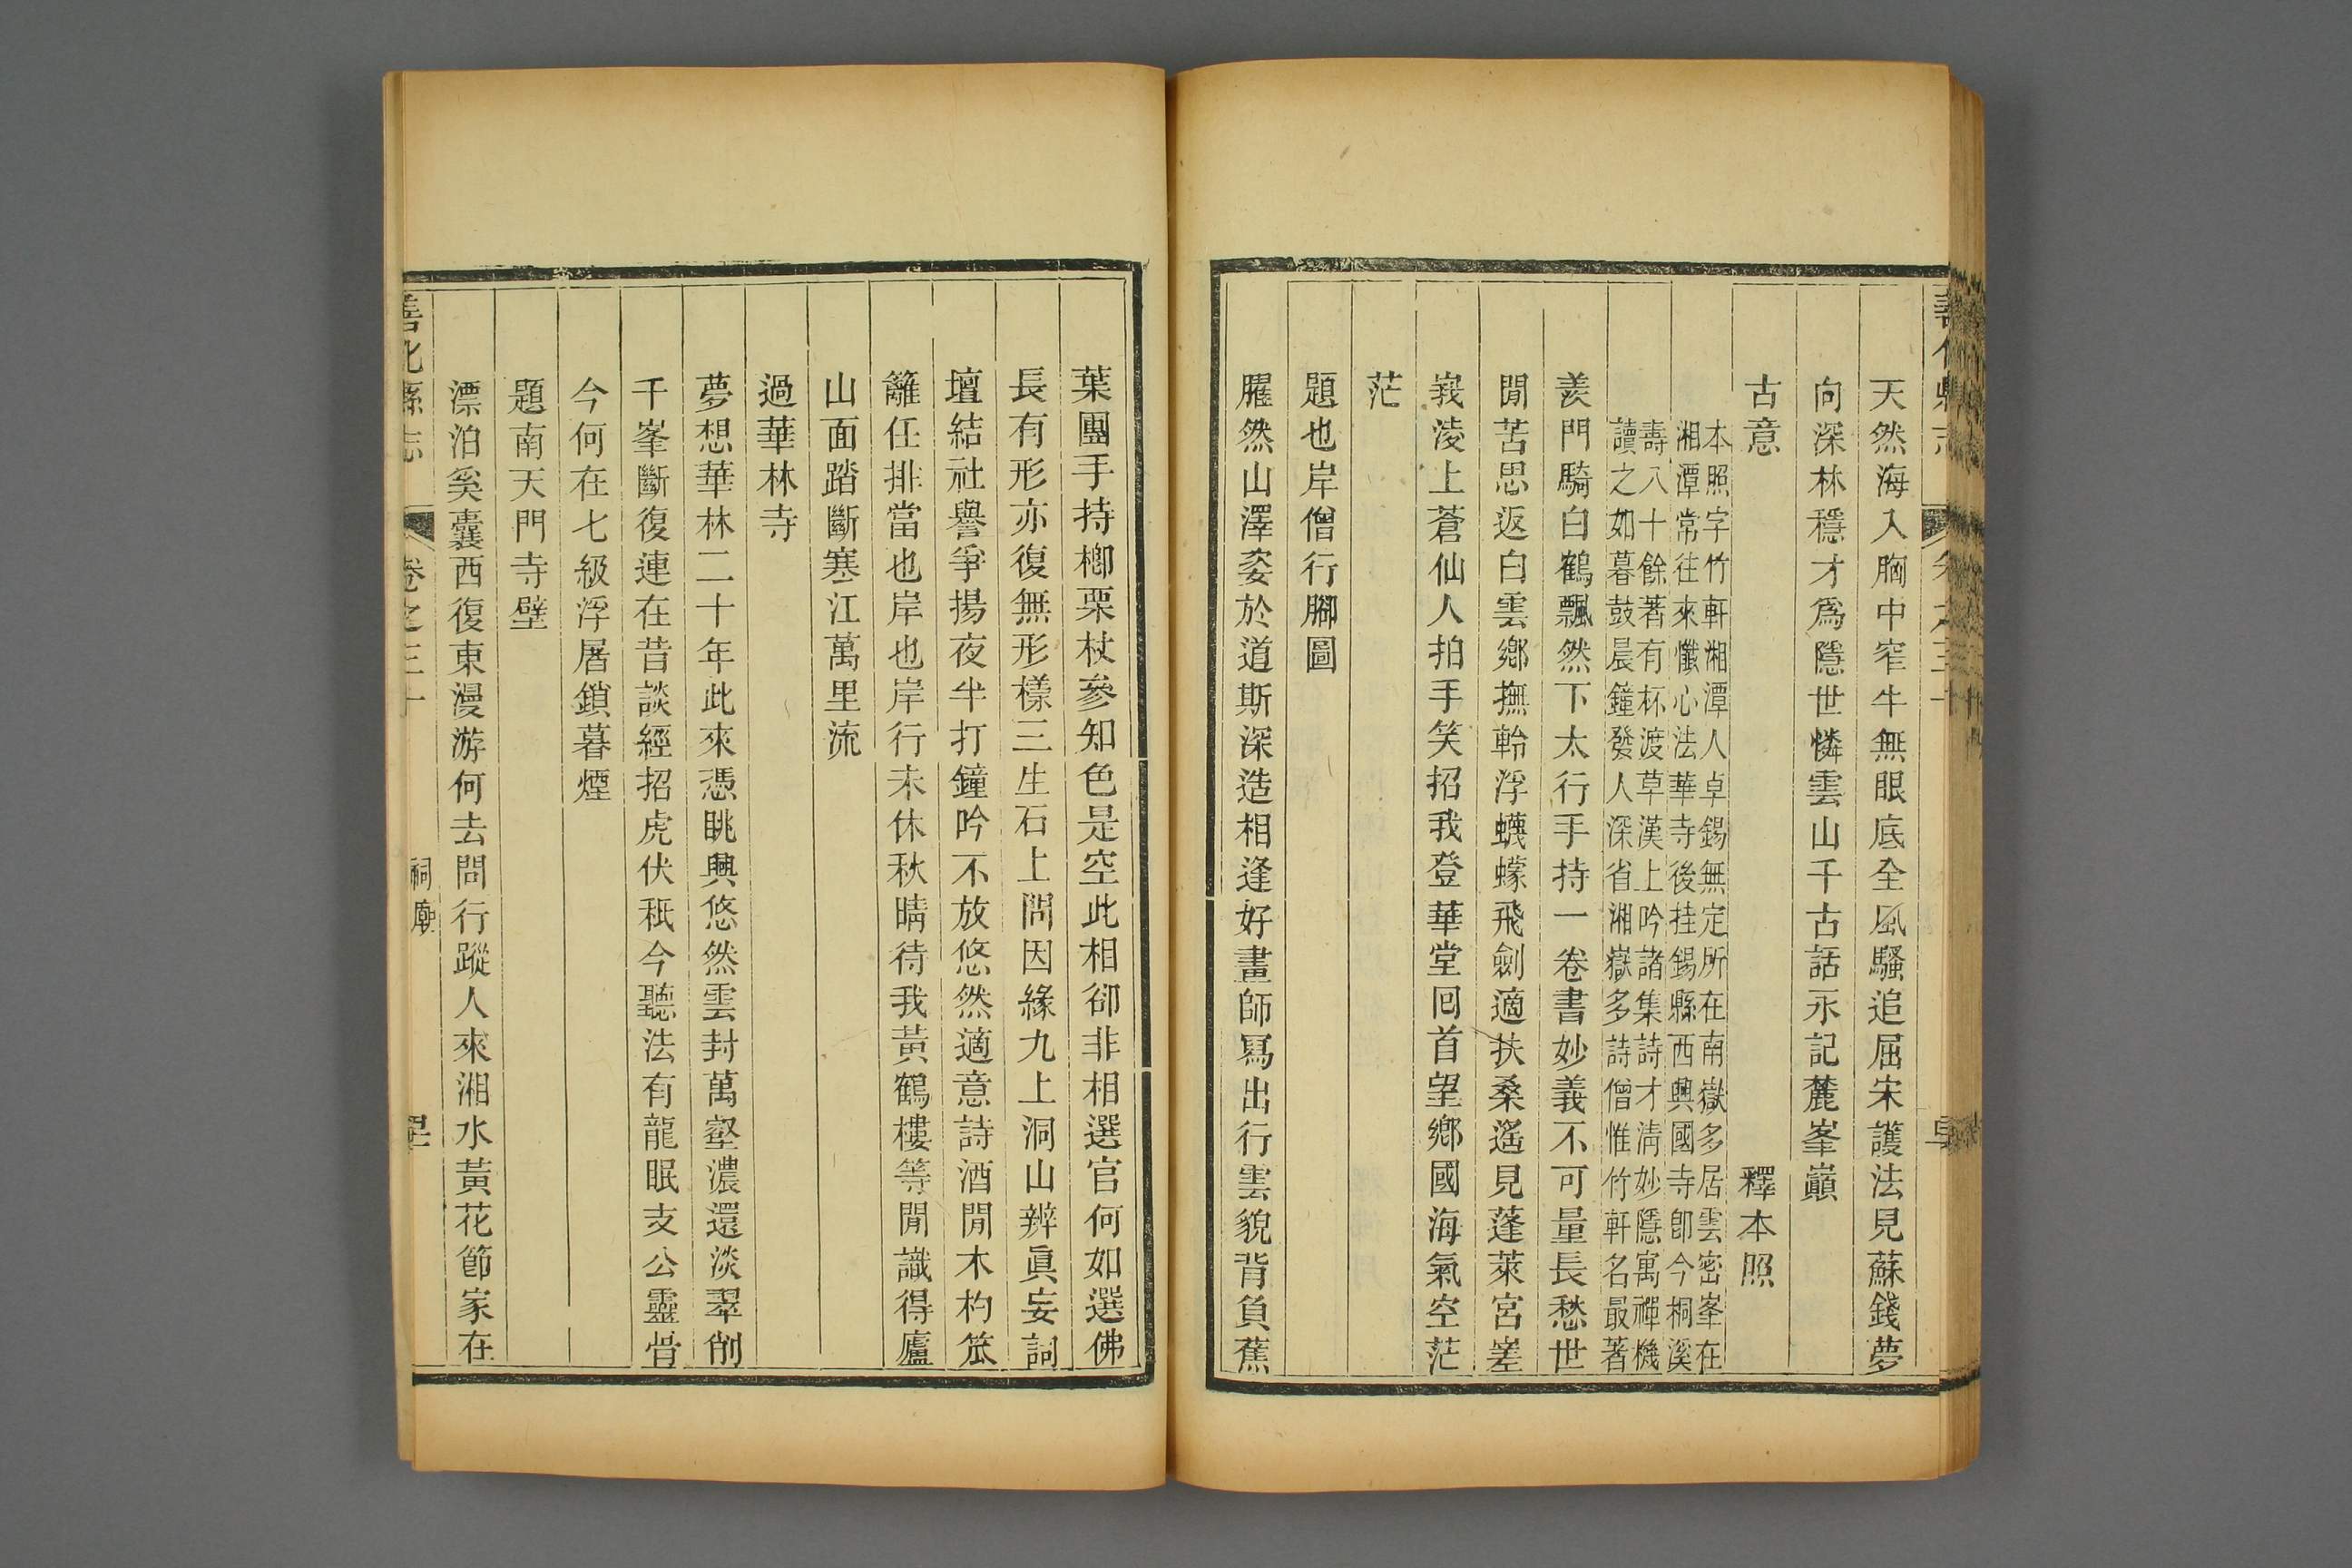 天然海入胸中窄牛無眼底全風騷追屈宋護法見蘇錢夢
向深林穩才爲隱世憐雲山千古話永記麓峯巔
古意　釋本照
本照字竹軒湘潭人卓錫無定所在南嶽多居雲密峯在
湘潭常往來懺心法華寺後挂錫縣西興國寺卽今桐溪
壽八十餘著有杯渡草漢上吟諸集詩才淸妙隱寓禪機
讀之如暮鼓晨鐘發人深省湘嶽多詩僧惟竹軒名最著
羨門騎白鶴飄然下太行手持一卷書妙義不可量長愁世
閒苦思返白雲鄕撫軨浮蠛蠓飛劍適扶桑遙見蓬萊宮嵳
峩淩上蒼仙人拍手笑招我登華堂囘首望鄕國海氣空茫
茫
題也岸僧行腳圖
臞然山澤姿於道斯深造相逢好畫師寫出行雲貌背負蕉
葉團手持榔栗杖參知色是空此相卻非相選官何如選佛
長有形亦復無形樣三生石上問因緣九上洞山辨眞妄詞
壇結社譽爭揚夜半打鐘吟不放悠然適意詩酒閒木杓笊
籬任排當也岸也岸行未休秋晴待我黃鶴樓等閒識得廬
山面踏斷寒江萬里流
過華林寺
夢想華林二十年此來憑眺興悠然雲封萬壑濃還淡翠削
千峯斷復連在昔談經招虎伏秖今聽法有龍眠支公靈骨
今何在七級浮屠鎖暮煙
題南天門寺壁
漂泊奚囊西復東漫游何去問行蹤人來湘水黃花節家在
善化縣志　卷之三十　祠廟